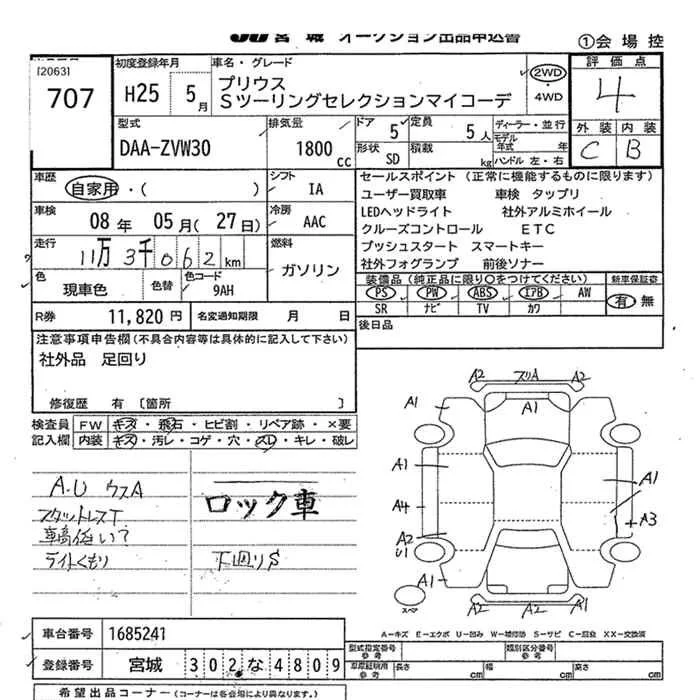 JU 宮城 オークション出品申込書
①会場控
[2063]
707
初度登録年月
H25 5月
車名・グレード
プリウス
Sツーリングセレクションマイコーデ
2WD
・4WD
評価点
4
外装 内装
C B
型式
DAA-ZVW30
排気量
1800 cc
ドア 5
定員 5人
形状 SD
積載 kg
ディーラー・並行
モデル年式 年
ハンドル 左・右
車歴
自家用・( )
シフト
IA
車検
08年 05月(27日)
冷房
AAC
走行
11万3千062km
燃料
ガソリン
色
現車色
色替
色コード
9AH
R券 11,820円
名変通知期限 月 日
セールスポイント(正常に機能するものに限ります)
ユーザー買取車 車検 タップリ
LEDヘッドライト 社外アルミホイール
クルーズコントロール ETC
プッシュスタート スマートキー
社外フォグランプ 前後ソナー
装備品(純正品に限り○をつけてください)
新車保証書
PS PW ABS エアB AW
有 無
SR ナビ TV カワ
後日品
注意事項申告欄(不具合内容等は具体的に記入して下さい)
社外品 足回り
修復歴 有[箇所 ]
検査員 FW キズ・飛石・ヒビ割・リペア跡・×要
記入欄 内装 キズ・汚レ・コゲ・穴・スレ・キレ・破レ
A・U ウスA
スタットレスT
車高低い?
ライトくもり
ロック車
下回りS
A2 スリA A2
A1 A1
A1 A1
A4 A3
A2
U1
A1
スペア
A2 A2 A2
A―キズ E―エクボ U―凹み W―補修跡 S―サビ C―腐食 XX―交換済
車台番号 1685241
登録番号 宮城 302な4809
型式指定番号 参考
類別区分番号 参考
車庫証明用 参考
長さ cm 幅 cm 高さ cm
希望出品コーナー(コーナーは各会場により異なります。)